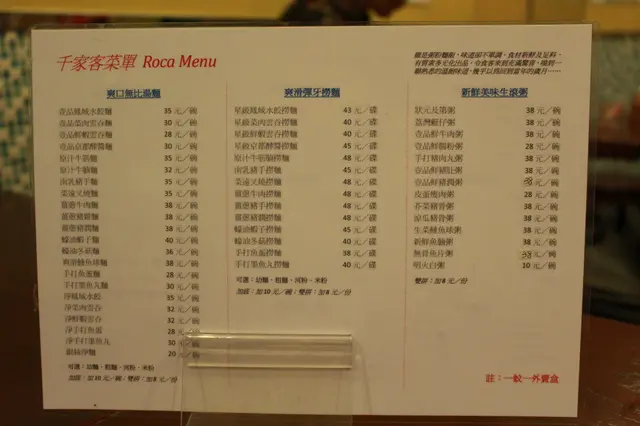 千家客菜單 Roca Menu
爽口無比湯麵
壹品鳳城水餃麵 35 元／碗
壹品菜肉雲吞麵 30 元／碗
壹品鮮蝦雲吞麵 28 元／碗
壹品京都醡醬麵 30 元／碗
原汁牛筋麵 35 元／碗
原汁牛筋腩麵 32 元／碗
南乳豬手麵 35 元／碗
菜遠叉燒麵 35 元／碗
薑蔥牛肉麵 38 元／碗
薑蔥豬膶麵 38 元／碗
薑蔥豬腰麵 38 元／碗
蠔油蝦子麵 40 元／碗
蠔油冬菇麵 36 元／碗
爽滑鯪魚球麵 38 元／碗
手打魚蛋麵 28 元／碗
手打墨魚丸麵 30 元／碗
淨鳳城水餃 35 元／碗
淨菜肉雲吞 32 元／碗
淨鮮蝦雲吞 32 元／碗
淨手打魚蛋 28 元／碗
淨手打墨魚丸 30 元／碗
銀絲淨麵 20 元／碗
可選：幼麵、粗麵、河粉、米粉
加底：加10元／碗；雙拼：加8元／份
爽滑彈牙撈麵
星級鳳城水餃撈麵 43 元／碟
星級菜肉雲吞撈麵 40 元／碟
星級鮮蝦雲吞撈麵 40 元／碟
星級京都醡醬撈麵 45 元／碟
原汁牛筋腩撈麵 48 元／碟
南乳豬手撈麵 45 元／碟
菜遠叉燒撈麵 45 元／碟
薑蔥牛肉撈麵 48 元／碟
薑蔥豬手撈麵 48 元／碟
薑蔥豬膶撈麵 48 元／碟
蠔油蝦子撈麵 45 元／碟
蠔油冬菇撈麵 40 元／碟
手打魚蛋撈麵 38 元／碟
手打墨魚丸撈麵 40 元／碟
可選：幼麵、粗麵、河粉、米粉
加底：加10元／碗；雙拼：加8元／份
新鮮美味生滾粥
狀元及第粥 38 元／碗
荔灣艇仔粥 38 元／碗
壹品鮮牛肉粥 38 元／碗
壹品鮮豬粉粥 28 元／碗
手打豬肉丸粥 38 元／碗
壹品鮮豬肚粥 38 元／碗
壹品鮮豬膶粥 元／碗
皮蛋瘦肉粥 28 元／碗
芥菜豬骨粥 38 元／碗
涼瓜豬骨粥 38 元／碗
生菜鯪魚球粥 38 元／碗
新鮮魚腩粥 38 元／碗
無骨魚片粥 元／碗
明火白粥 10 元／碗
雙拼：加8元／份
註：一蚊一外賣盒